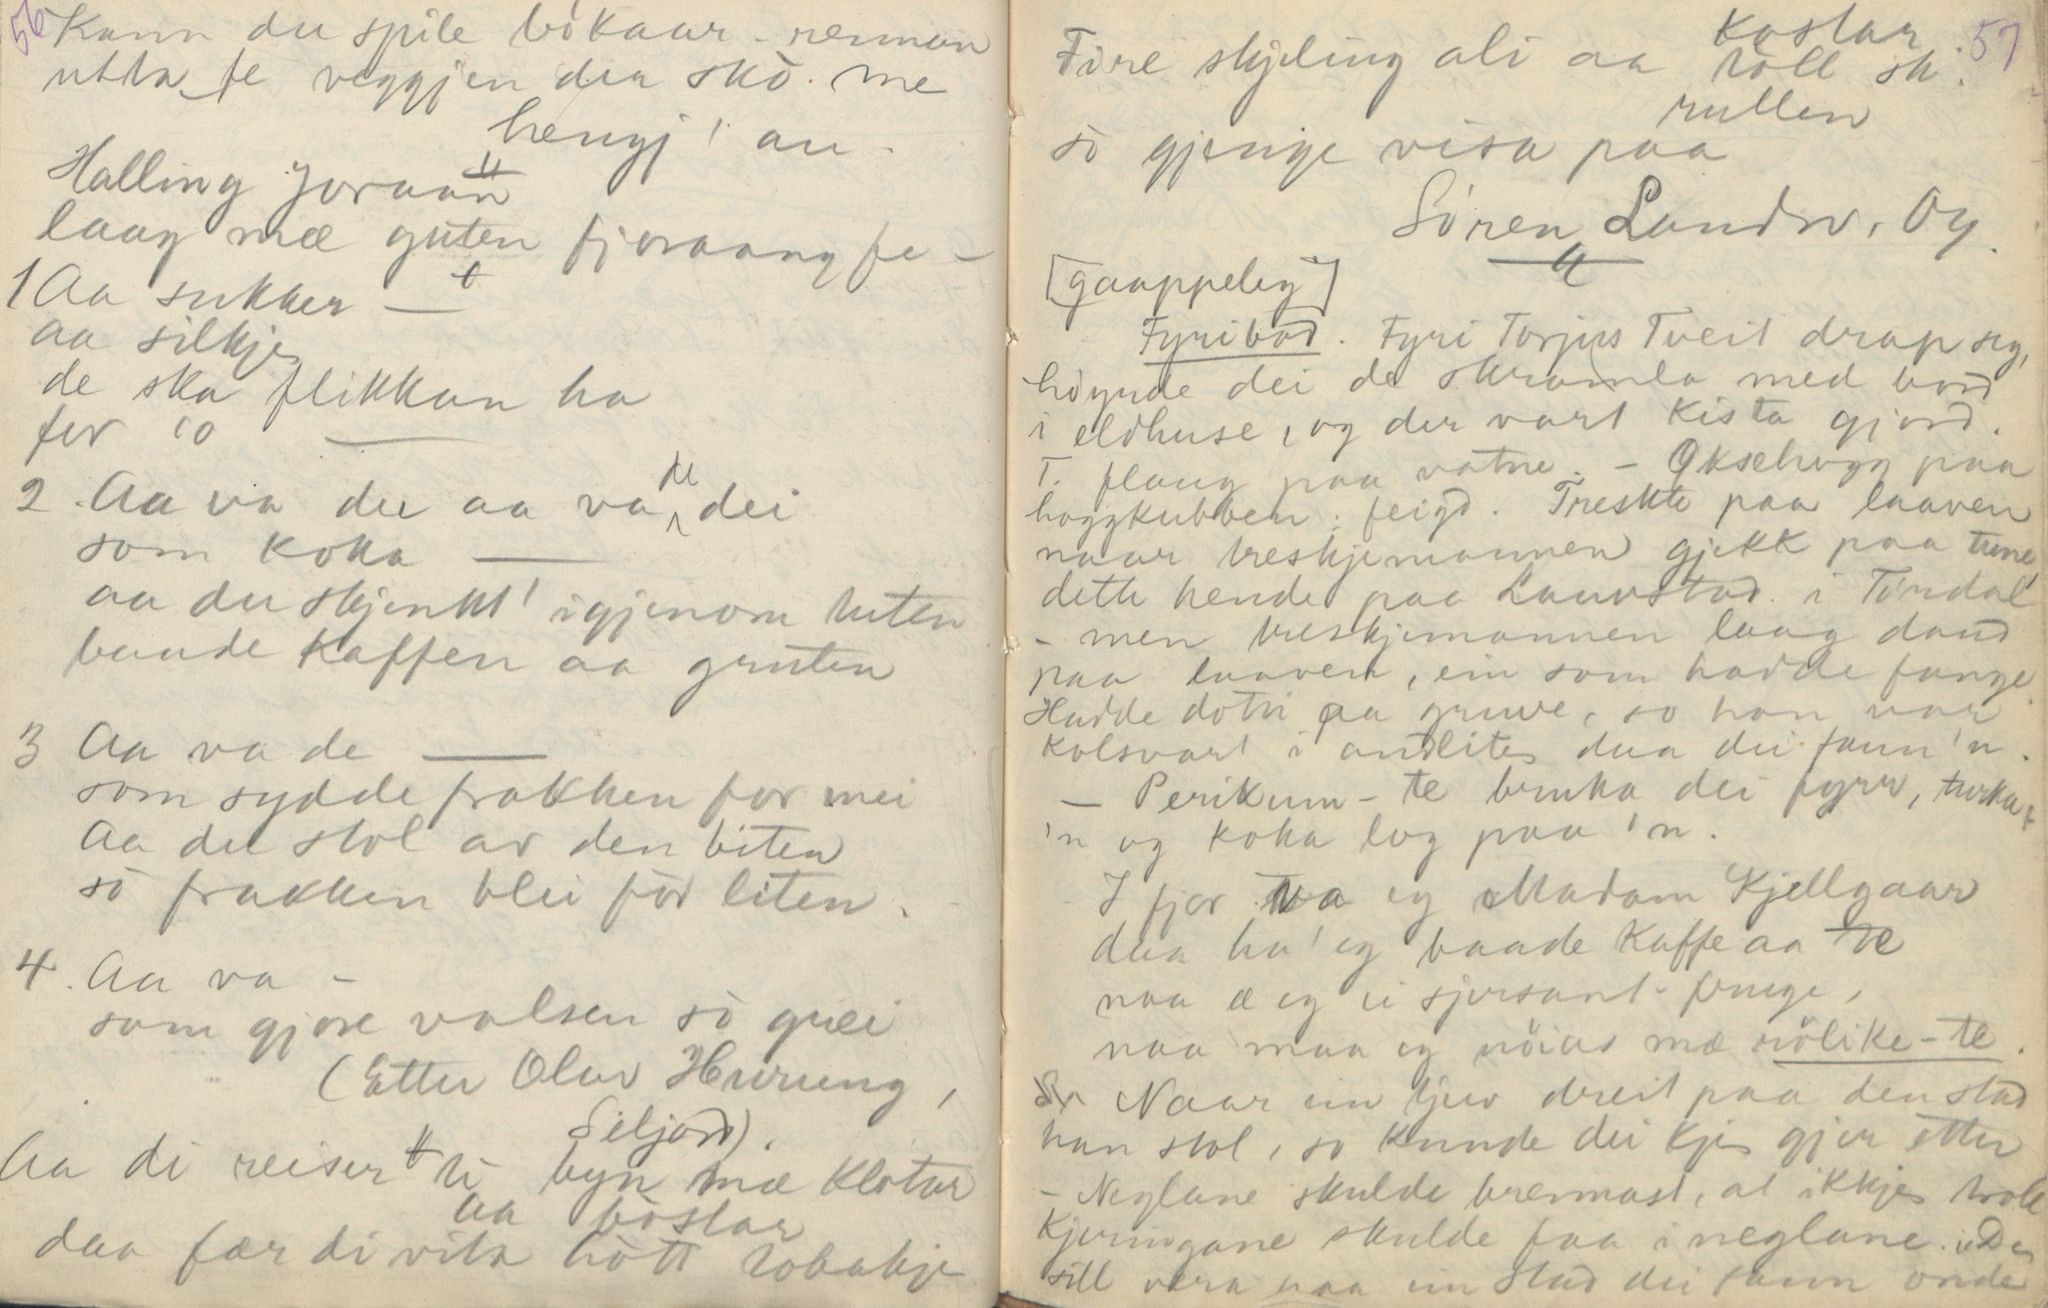 56
Kann du spile bökaur - rennan
utta te veggjen der sko. me
hengj' an.
Halling Joraan
laag mæ guten fjoraang fe -
1 Aa sukker —
aa silkje
de ska flikkan ha
fer 'o —
2. Aa va du aa va du dei
som koka —
aa du skjenkt' igjenom tuten
baade kaffen aa gruten
3 Aa va de —
som sydde frakken for mei
Aa du stol av den biten
sò frakken blei för liten.
4. Aa va -
som gjore valsen sò grei
(Etter Olav Hururng,
Seljord).
Aa di reiser ti byn mæ klotar
aa böslar
daa fær di vita hòtt tobakje
57
kostar
Fire skjeling ali aa toll sk.
rullen
sò gjenge visa paa
Sören Landsv. Og.
[gaappeleg]
Fyribod. Fyri Torjus Tveit drap seg,
höyrde dei de skramla med bord
i eldhuse, og der vart kista gjord.
T. flaug paa vatne. - Oksehogg paa
hoggkubben, feigd. Treskte paa laaven
naar treskjemannen gjekk paa tune
dette hende paa Laurstad i Tördal
- men treskjemannen laag daud
paa laaven, ein som hadde fange
Hadde dotti paa gruve, so han var
kolsvart i andlite daa dei fann 'n.
- Perikum-te bruka dei fyrr, turka
'n og koka log paa 'n.
I fjor va eg Madam Kjellgaar
daa ha' eg baade kaffe aa te
naa æ eg ei sjersant-
naa maa eg nöias mæ rölike-te.
Naar ein tjuv dreit paa den stad
han stol, so kunde dei kje gjer etter
- Neglane skulde brennast, at ikkje troll
kjeringane skulde faa i neglane. De
sill vera naa ein stad dei onde